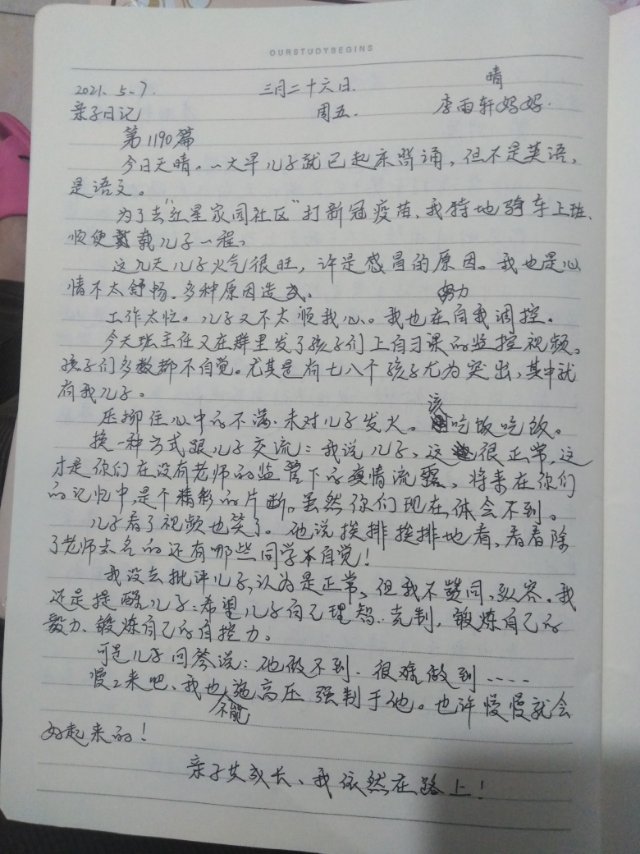 OURSTUDYBEGINS
2021. 5.7. 三月二十六日. 晴
亲子日记 周五. 李雨轩妈妈.
第1190篇
今日天晴。一大早儿子就已起床背诵，但不是英语，
是语文。
为了去“红星家园社区”打新冠疫苗，我特地骑车上班、
顺便载儿子一程。
这几天儿子火气很旺，许是感冒的原因。我也是心
情不太舒畅。多种原因造成。
工作太忙。儿子又不太顺我心。我也在努力自我调控。
今天班主任又在群里发了孩子们上自习课的监控视频。
孩子们多数都不自觉。尤其是有七八个孩子尤为突出，其中就
有我儿子。
压抑住心中的不满，未对儿子发火。该吃饭吃饭。
换一种方式跟儿子交流：我说儿子，这很正常，这
才是你们在没有老师的监管下的真情流露，将来在你们
的记忆中，是个精彩的片断。虽然你们现在体会不到。
儿子看了视频也笑了。他说挨排挨排地看，看看除
了老师点名的还有哪些同学不自觉！
我没去批评儿子，认为是正常，但我不赞同，纵容。我
还是提醒儿子：希望儿子自己理智、克制，锻炼自己的
毅力、锻炼自己的自控力。
可是儿子回答说：他做不到，很难做到....
慢慢来吧、我也不能施高压强制于他。也许慢慢就会
好起来的！
亲子共成长、我依然在路上！